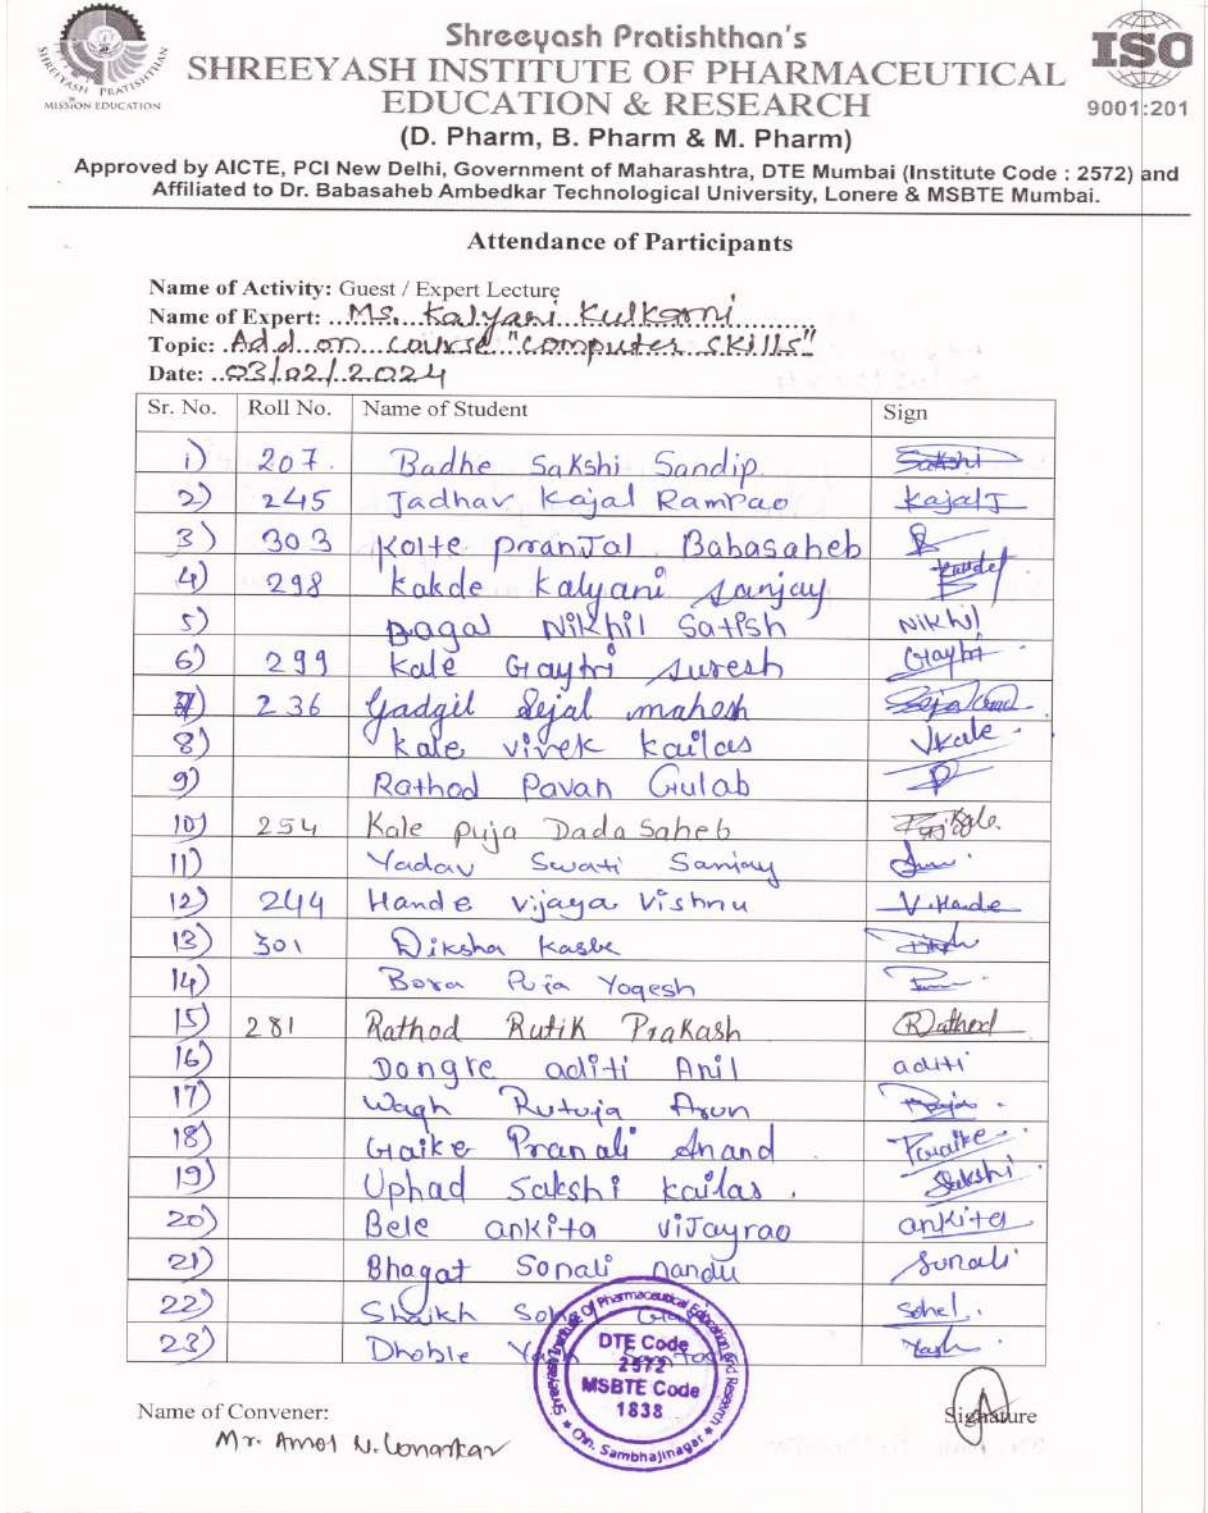 Shreeyash Pratishthan's
SHREEYASH INSTITUTE OF PHARMACEUTICAL
EDUCATION & RESEARCH
(D. Pharm, B. Pharm & M. Pharm)
Approved by AICTE, PCI New Delhi, Government of Maharashtra, DTE Mumbai (Institute Code : 2572) and
Affiliated to Dr. Babasaheb Ambedkar Technological University, Lonere & MSBTE Mumbai.
SHREEYASH PRATISHTHAN
MISSION EDUCATION
ISO
9001:201
Attendance of Participants
Name of Activity: Guest / Expert Lecture
Name of Expert: Ms. Kalyani Kulkarni
Topic: Add on course "computer skills"
Date: 03/02/2024
Sr. No. Roll No. Name of Student Sign
1) 207. Badhe Sakshi Sandip Sakshi
2) 245 Jadhav Kajal Ramrao KajalJ
3) 303 Kolte pranJal Babasaheb
4) 298 kakde kalyani sanjay
5) Bagal Nikhil Satish Nikhil
6) 299 kale Gaytri suresh Gaytri
7) 236 Gadgil Sejal mahesh
8) kale vivek kailas Vkale
9) Rathod Pavan Gulab
10) 254 Kale puja Dada Saheb
11) Yadav Swati Sanjay
12) 244 Hande vijaya Vishnu V.Hande
13) 301 Diksha Kasbe
14) Bora Puja Yogesh
15) 281 Rathod Rutik Prakash Rathod
16) Dongre aditi Anil aditi
17) Wagh Rutuja Arun
18) Gaike Pranali Anand PGaike
19) Uphad Sakshi kailas. Sakshi
20) Bele ankita viJayrao ankita
21) Bhagat Sonali nandu Sonali
22) Shaikh Sohel.
23) Dhoble Yash
Shreeyash Institute Of Pharmaceutical Education And Research
DTE Code
2572
MSBTE Code
1838
Chh. Sambhajinagar
Name of Convener:
Signature
Mr. Amol N. Lonarkar